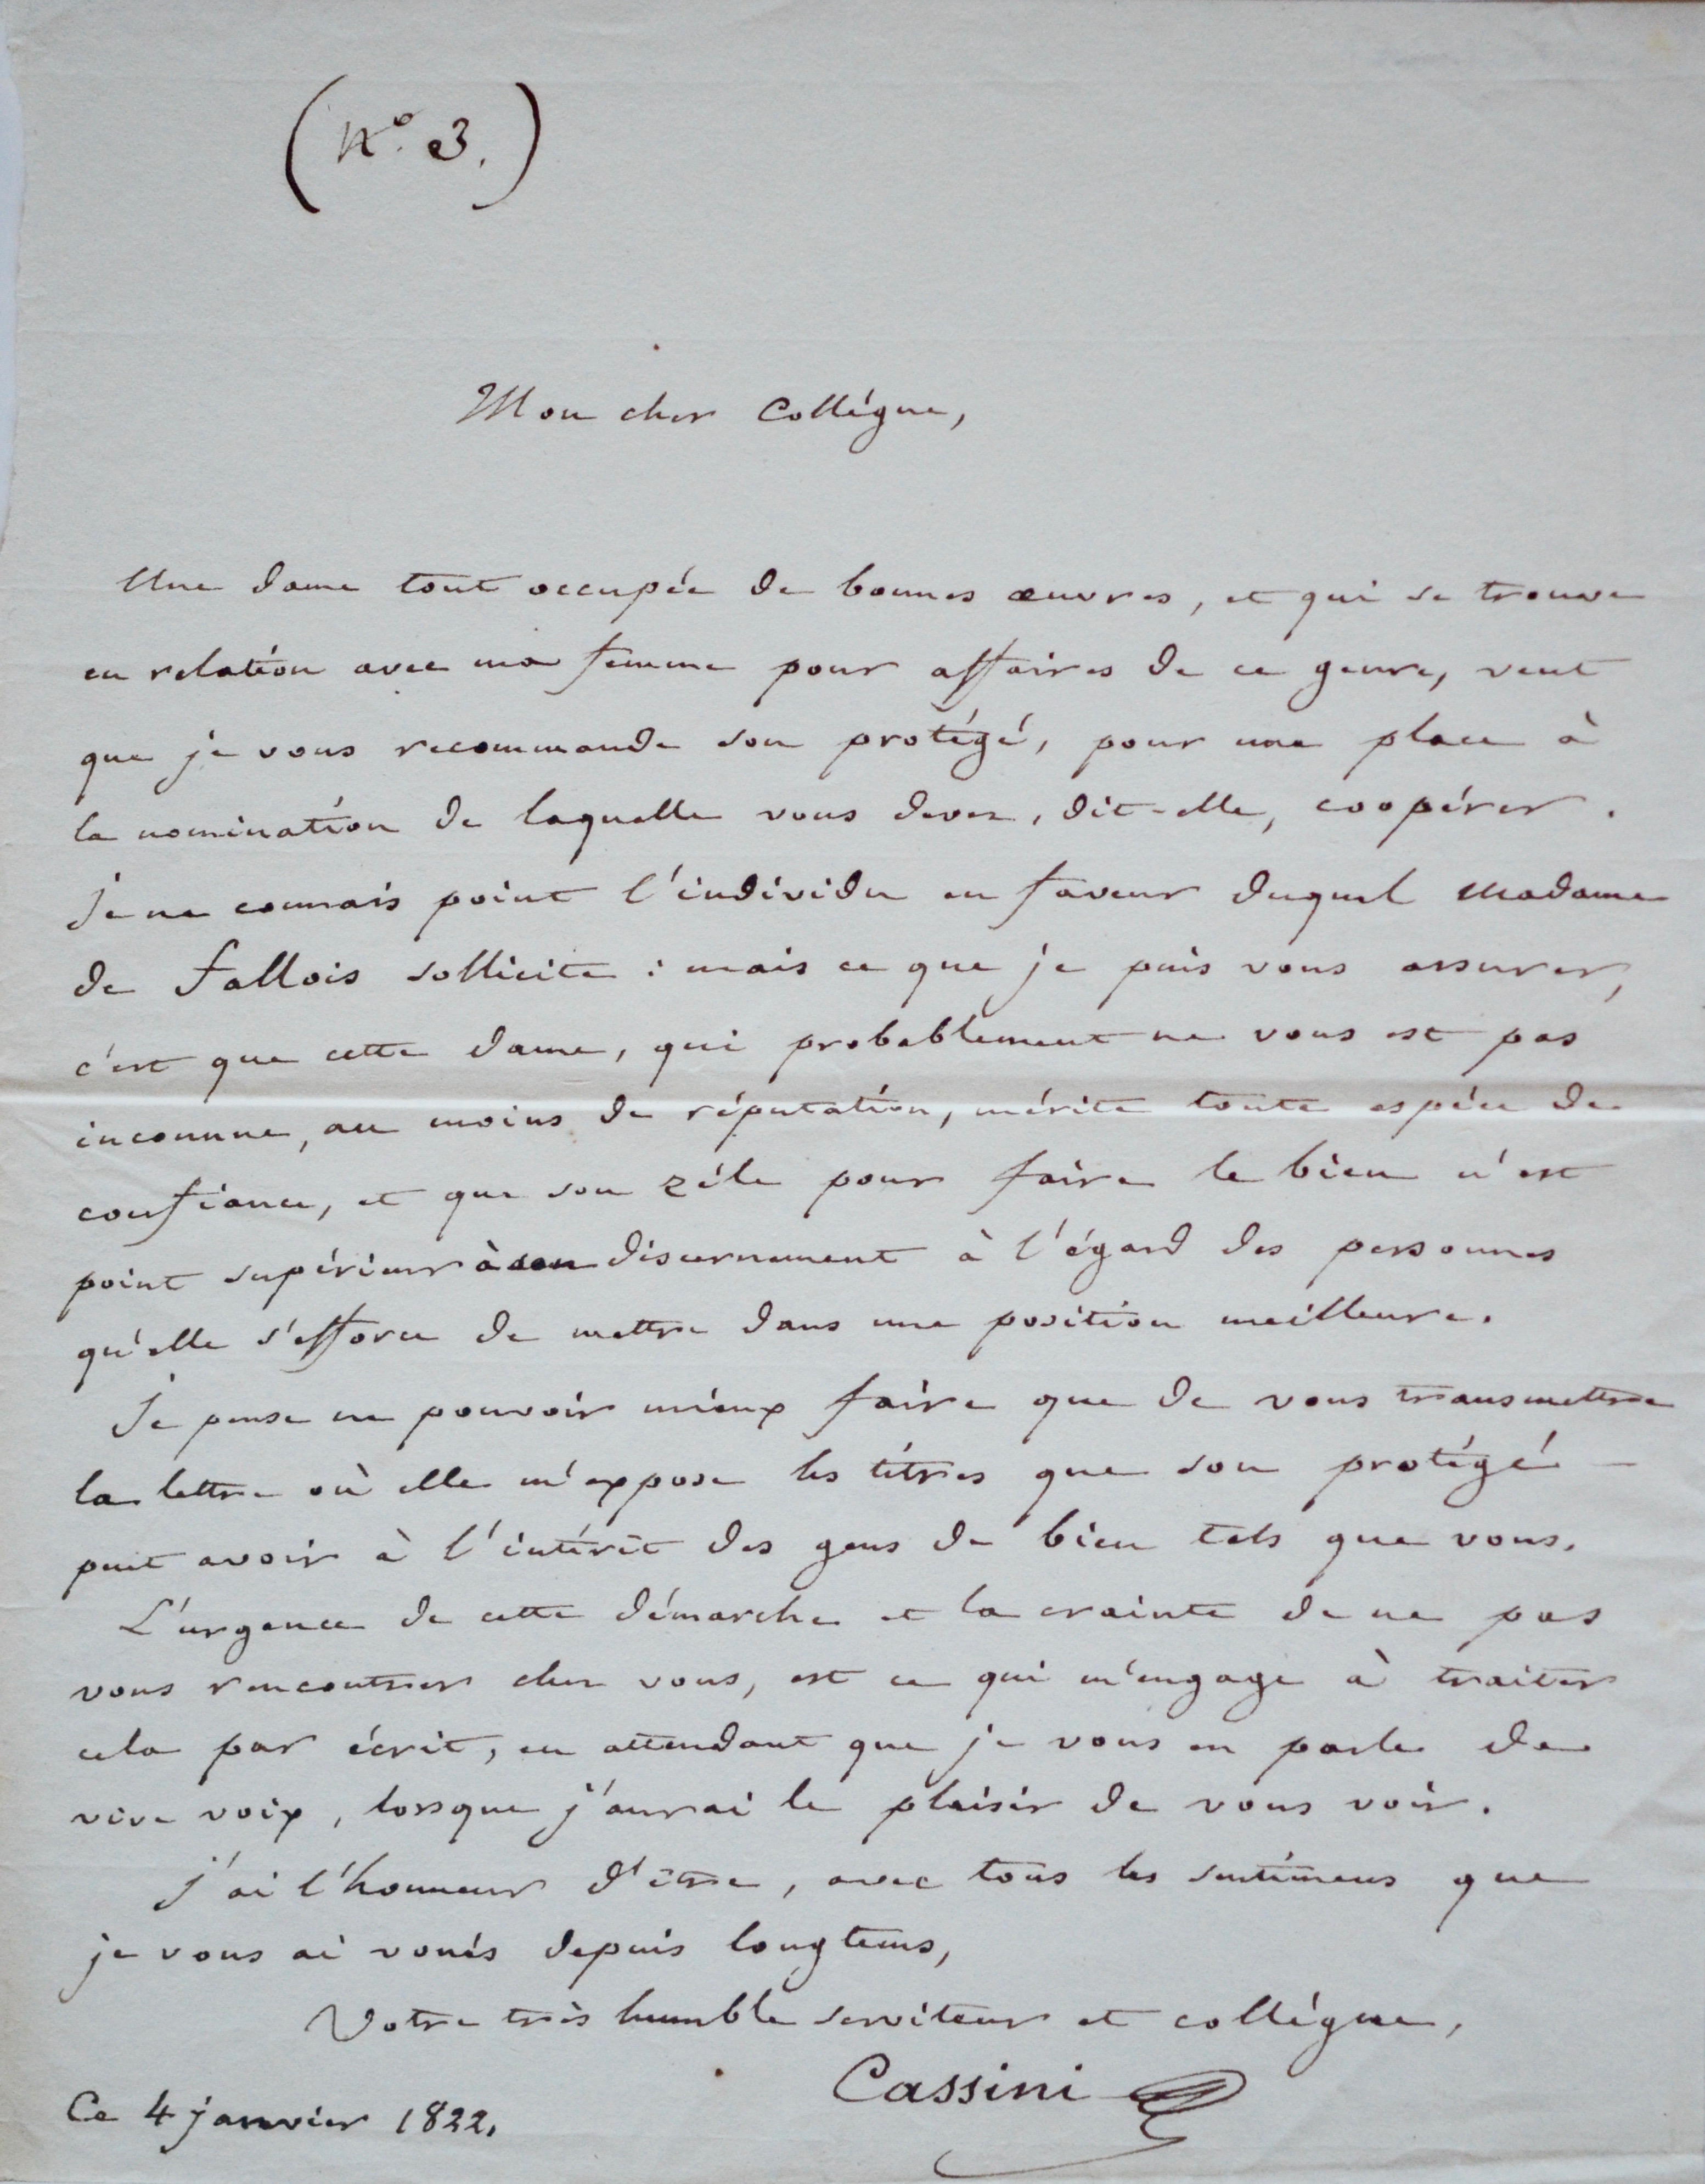 (N.° 3.)
Mon cher Collégue,
Une dame tout occupée de bonnes œuvres, et qui se trouve
en relation avec ma femme pour affaires de ce genre, veut
que je vous recommande son protégé, pour une place à
la nomination de laquelle vous devez, dit-elle, coopérer.
Je ne connais point l'individu en faveur duquel Madame
de Fallois sollicite : mais ce que je puis vous assurer,
c'est que cette dame, qui probablement ne vous est pas
inconnue, au moins de réputation, mérite toute espéce de
confiance, et que son zéle pour faire le bien n'est
point supérieur à son discernement à l'égard des personnes
qu'elle s'efforce de mettre dans une position meilleure.
Je pense ne pouvoir mieux faire que de vous transmettre
la lettre où elle m'expose les titres que son protégé
peut avoir à l'intérêt des gens de bien tels que vous.
L'urgence de cette démarche et la crainte de ne pas
vous rencontrer chez vous, est ce qui m'engage à traiter
cela par écrit, en attendant que je vous en parle de
vive voix, lorsque j'aurai le plaisir de vous voir.
J'ai l'honneur d'être, avec tous les sentimens que
je vous ai voués depuis longtems,
Votre très humble serviteur et collégue,
Cassini
Ce 4 janvier 1822.